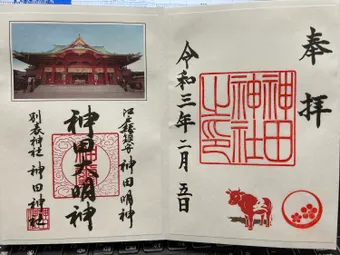 奉拝
神田
神社
之印
令和三年二月五日
江戸総鎮守 神田明神
神田大明神
別表神社 神田神社